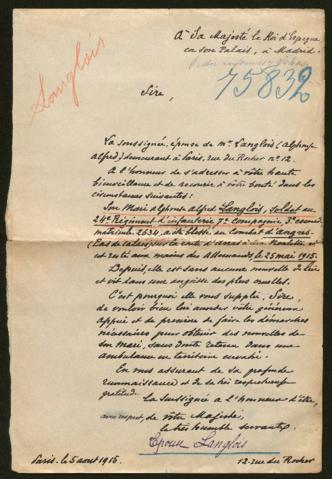 À Sa Majesté le Roi d'Espagne
en son Palais, à Madrid.
Langlois
75832
Sire,
La soussignée, épouse de Mr Langlois (Alphonse
Alfred) demeurant à Paris, rue du Rocher no 12.
A l'honneur de s'adresser à votre haute
bienveillance et de recourir à votre bonté dans les
circonstances suivantes:
Son Mari Alphonse Alfred Langlois, soldat au
24e Régiment d'infanterie, 7e Compagnie, 3e
matricule 2634, a été blessé au Combat d'Angres.
(Pas de Calais) sur la route d'Arras à
est resté aux mains des Allemands, le 25 mai 1915.
Depuis, elle est sans aucune nouvelle de lui
et vit dans une angoisse des plus cruelles.
C'est pourquoi elle vous supplie, Sire,
de vouloir bien lui accorder votre généreux
appui et de prescrire de faire les démarches
nécessaires pour obtenir des nouvelles de
son Mari, sans doute retenu dans une
ambulance en territoire envahi.
En vous assurant de sa profonde
reconnaissance et de sa très respectueuse
gratitude.
La Soussignée a l'honneur d'être,
avec respect, de votre Majesté,
la très humble servante,
Epouse Langlois
Paris, le 5 août 1915.
12 rue du Rocher